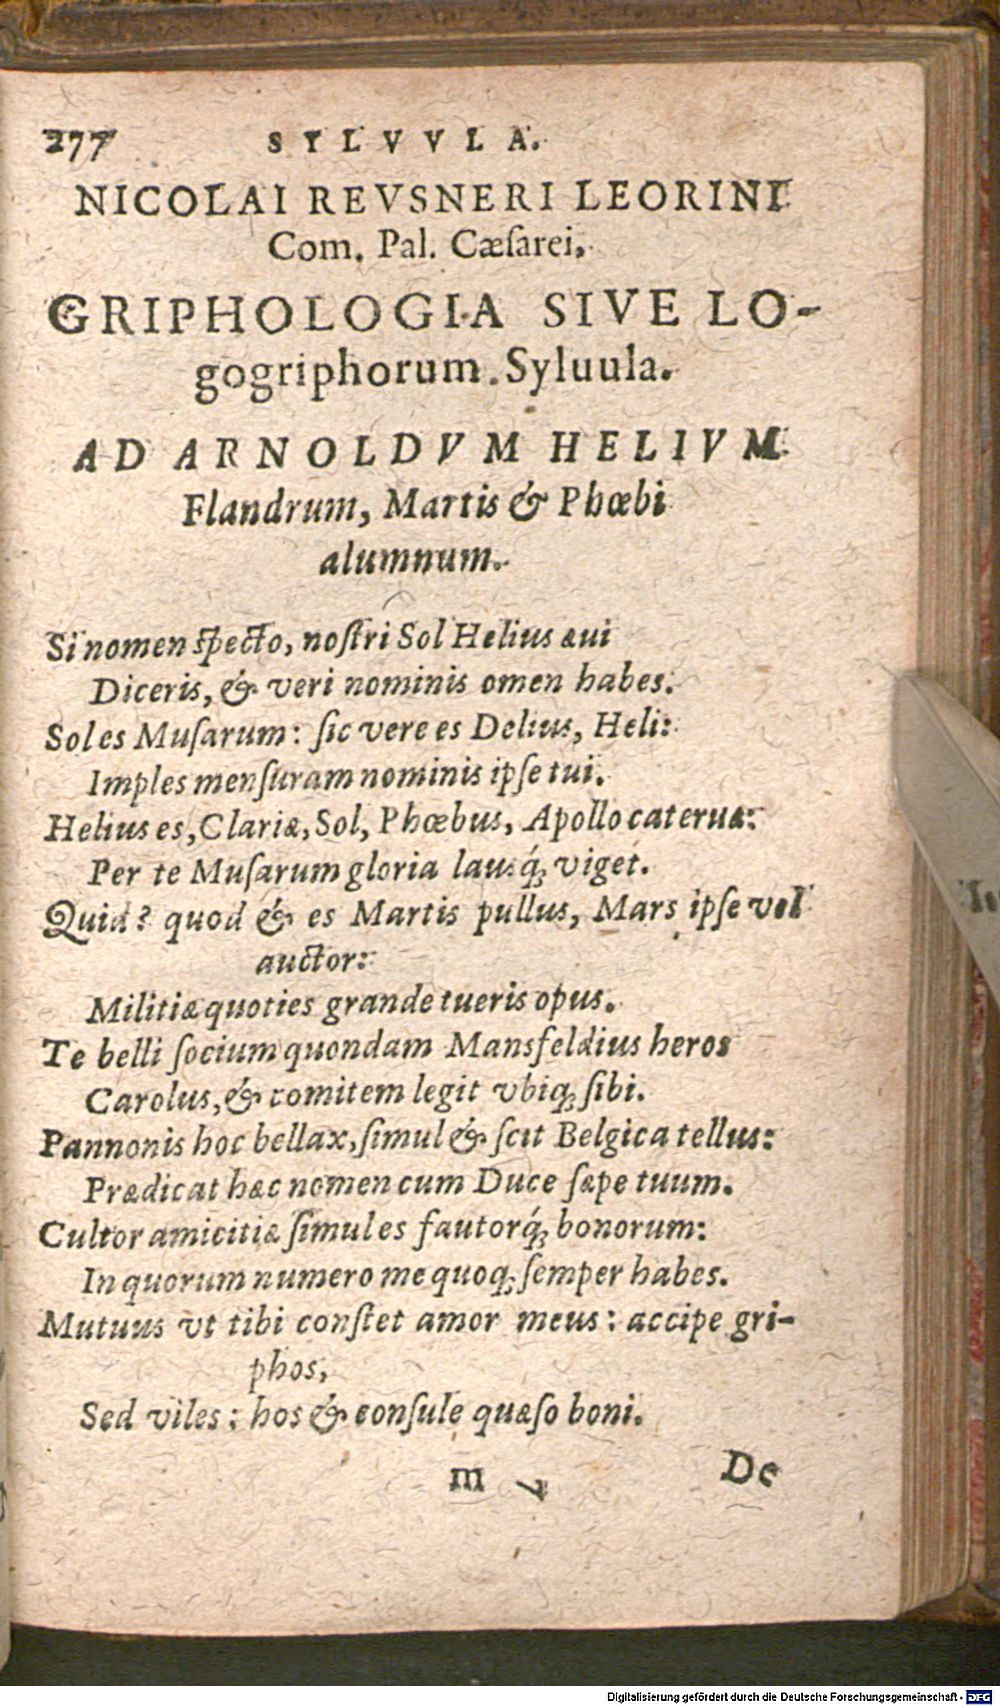 277 SYLVVLA.
NICOLAI REVSNERI LEORINI
Com. Pal. Cæſarei,
GRIPHOLOGIA SIVE LO-
gogriphorum. Syluula.
AD ARNOLDVM HELIVM
Flandrum, Martis & Phœbi
alumnum.
Si nomen ſpecto, noſtri Sol Helius æui
Diceris, & veri nominis omen habes.
Sol es Muſarum: ſic vere es Delius, Heli:
Imples menſuram nominis ipſe tui.
Helius es, Clariæ, Sol, Phœbus, Apollo cateruæ:
Per te Muſarum gloria lausq́; viget.
Quid? quod & es Martis pullus, Mars ipſe vel
auctor:
Militiæ quoties grande tueris opus.
Te belli ſocium quondam Mansfeldius heros
Carolus, & comitem legit vbiq; ſibi.
Pannonis hoc bellax, ſimul & ſcit Belgica tellus:
Prædicat hæc nomen cum Duce ſæpe tuum.
Cultor amicitiæ ſimul es fautorq́; bonorum:
In quorum numero me quoq; ſemper habes.
Mutuus vt tibi conſtet amor meus: accipe gri-
phos,
Sed viles: hos & conſule quæſo boni.
m 7 De
Digitalisierung gefördert durch die Deutsche Forschungsgemeinschaft - DFG